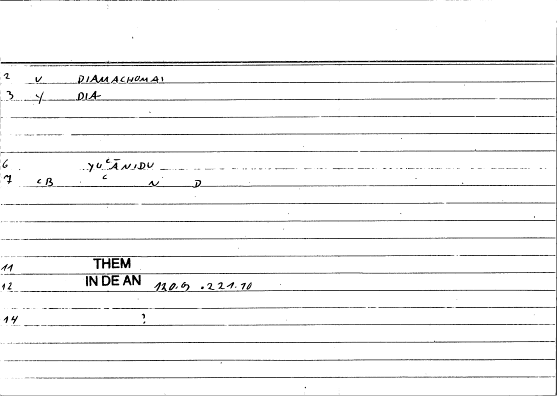 2 V DIAMACHOMAI
3 Y DIA
6 YUᶜĀNIDU
7 ᶜB ᶜ N D
11 THEM
12 IN DE AN 120.9 .221.10
14 ?